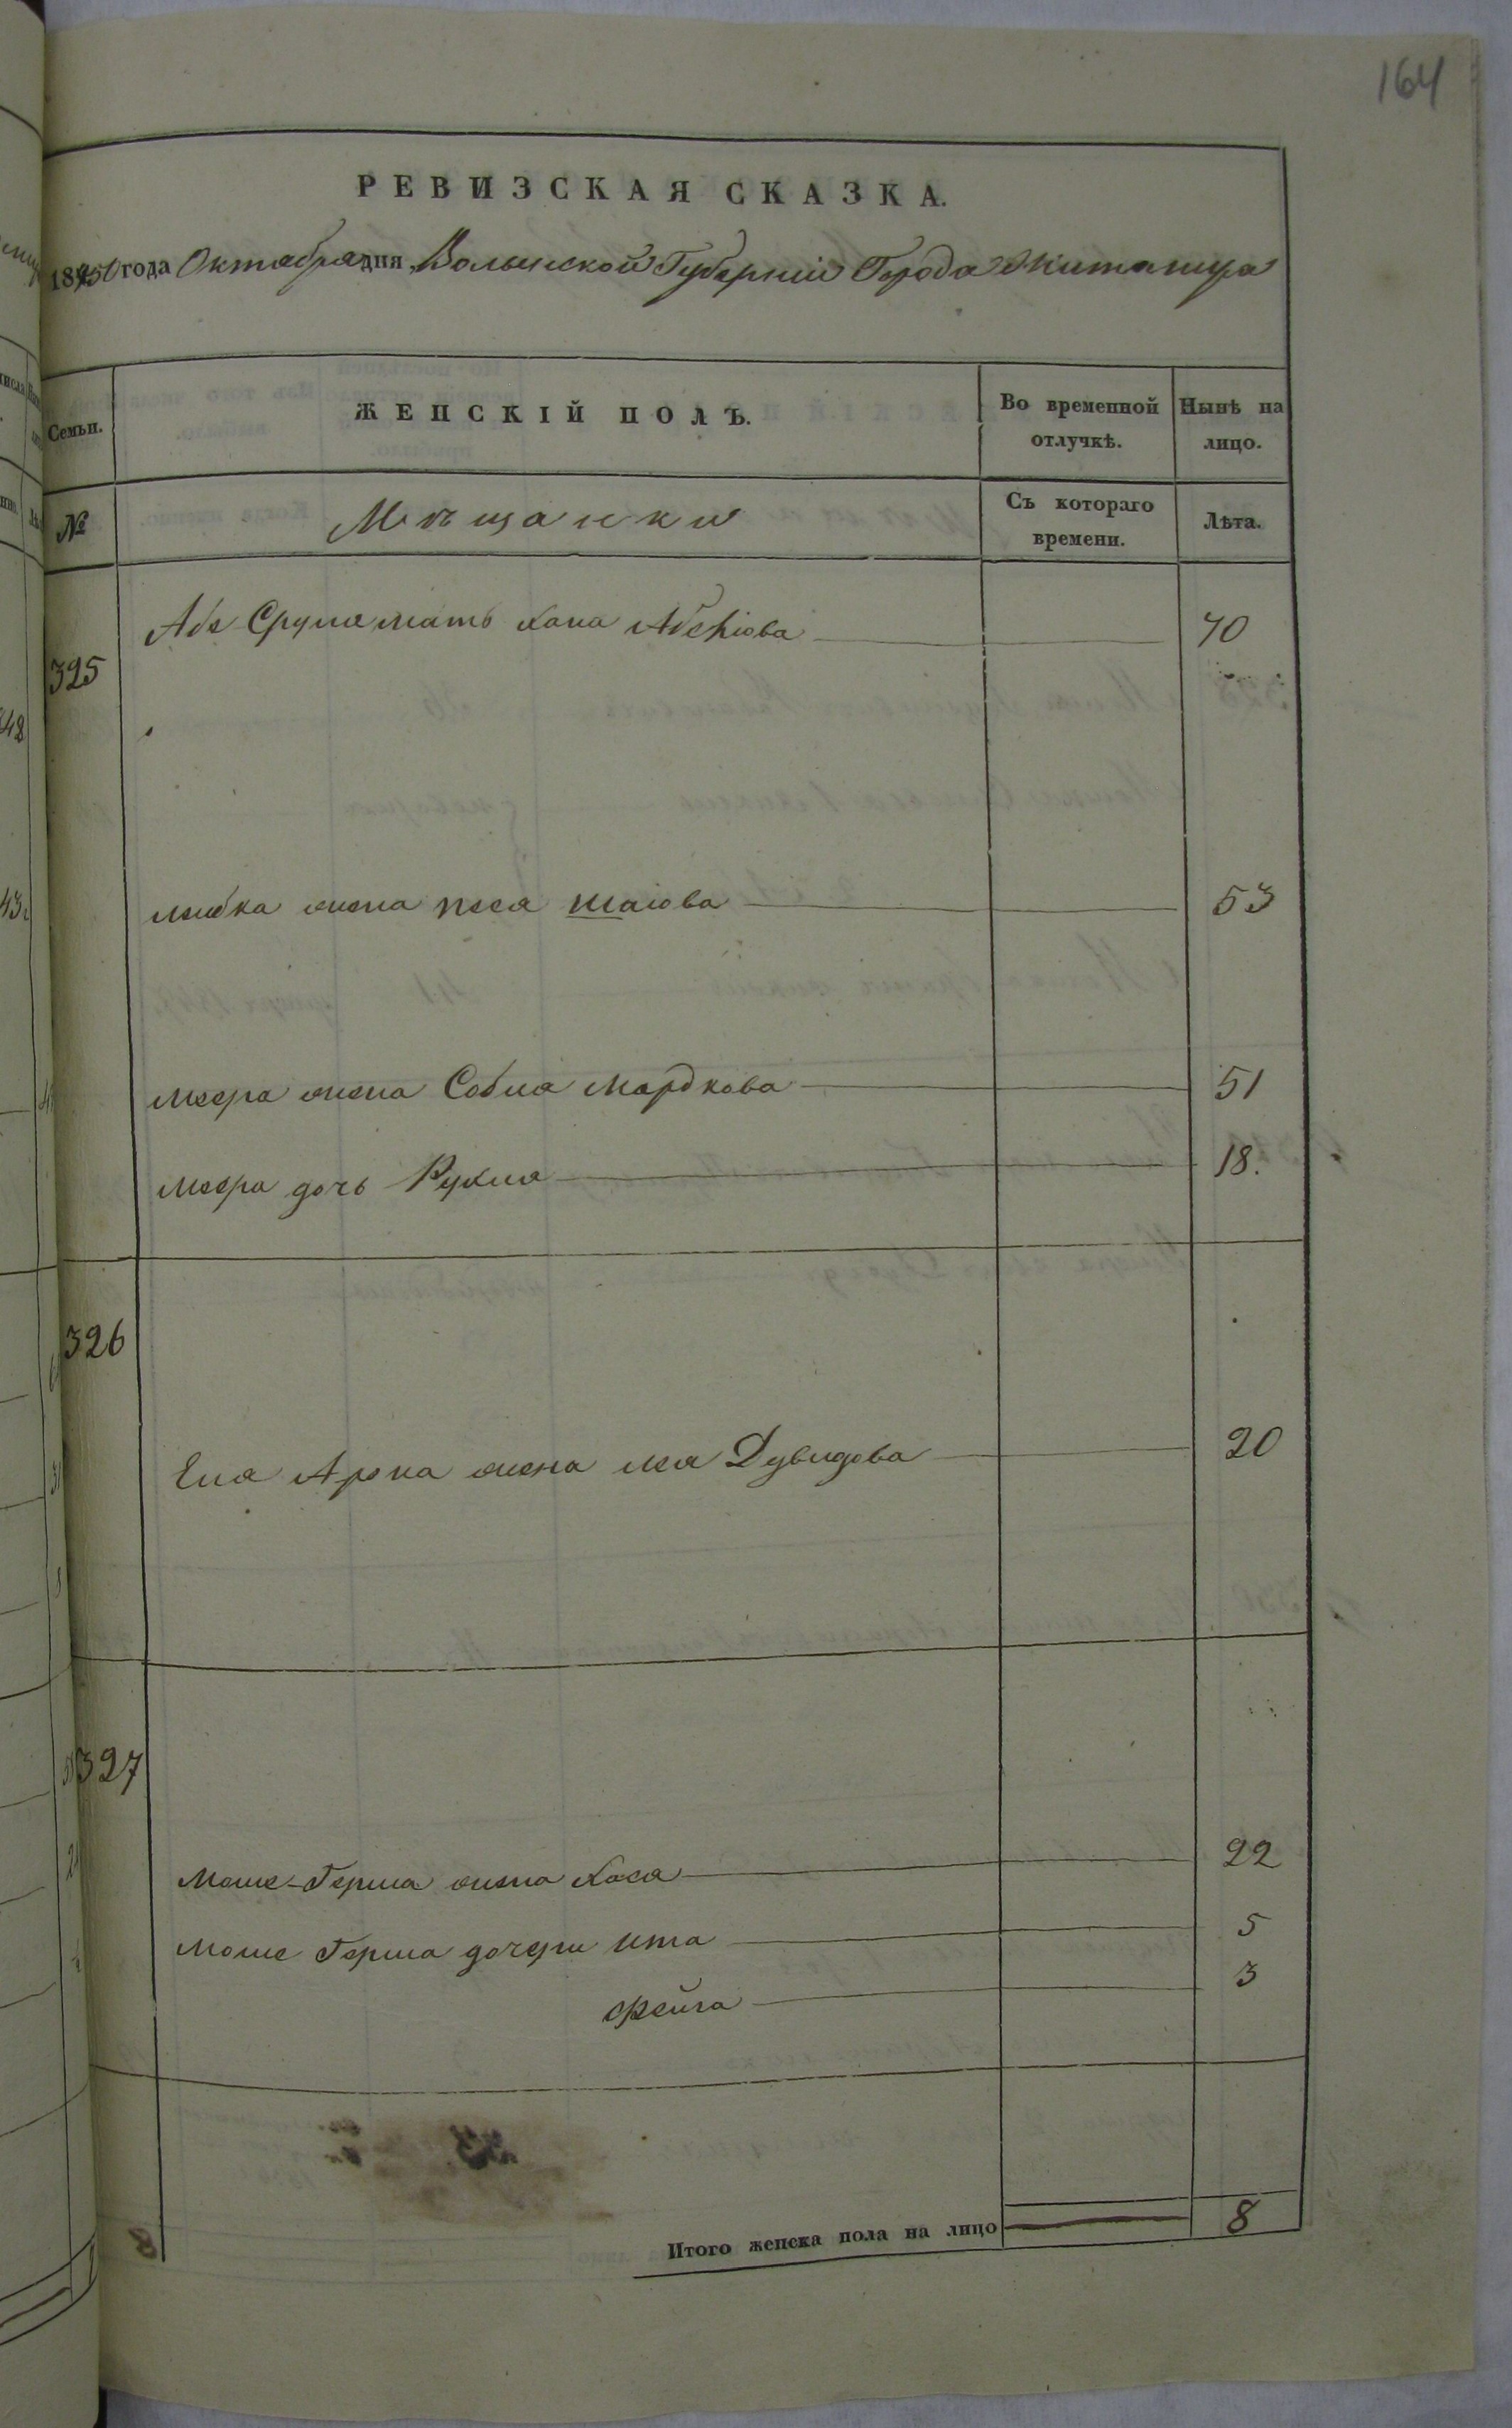 164
РЕВИЗСКАЯ СКАЗКА.
1850 года Октября дня Волынской Губерніи Города Житомира
Семьи. ЖЕНСКІЙ ПОЛЪ. Во временной отлучкѣ. Нынѣ на лицо.
№ Мѣщанки Съ котораго времени. Лѣта.
325 Абъ Сруля мать Хана 70
Лейбка жена Песя Шаіова 53
Меера жена Собля Мордкова 51
Меера дочь Рухля 18.
326
Еля Арона жена Лея Дувидова 20
327
Моше-Герша жена Хася 22
Моше Герша дочери Ита 5
Фейга 3
Итого женска пола на лицо 8